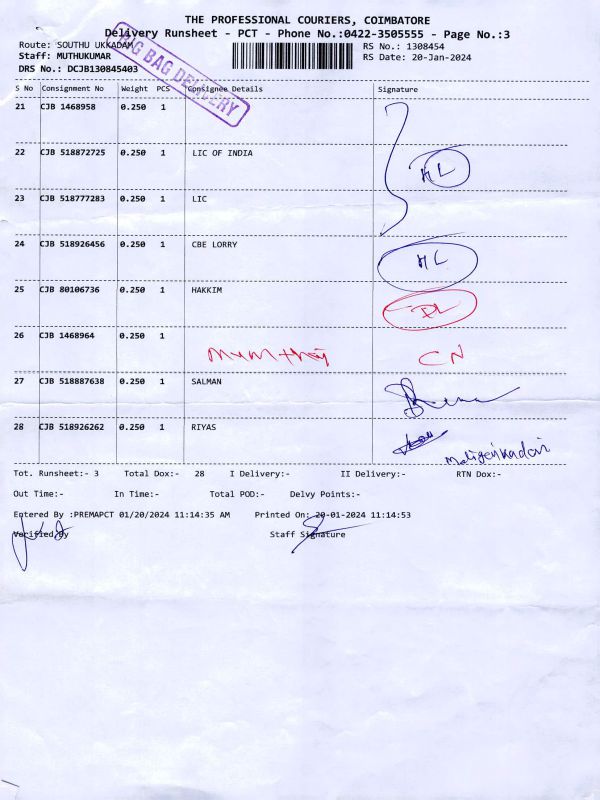 THE PROFESSIONAL COURIERS, COIMBATORE
Delivery Runsheet - PCT - Phone No.:0422-3505555 - Page No.:3
Route: SOUTHU UKKADAM RS No.: 1308454
Staff: MUTHUKUMAR RS Date: 20-Jan-2024
DRS No.: DCJB130845403
BIG BAG DELIVERY
S No Consignment No Weight PCS Consignee Details Signature
21 CJB 1468958 0.250 1
22 CJB 518872725 0.250 1 LIC OF INDIA HL
23 CJB 518777283 0.250 1 LIC
24 CJB 518926456 0.250 1 CBE LORRY HL
25 CJB 80106736 0.250 1 HAKKIM DL
26 CJB 1468964 0.250 1 CN
27 CJB 518887638 0.250 1 SALMAN
28 CJB 518926262 0.250 1 RIYAS
Tot. Runsheet:- 3 Total Dox:- 28 I Delivery:- II Delivery:- RTN Dox:-
Out Time:- In Time:- Total POD:- Delvy Points:-
Entered By :PREMAPCT 01/20/2024 11:14:35 AM Printed On: 20-01-2024 11:14:53
Verified By Staff Signature